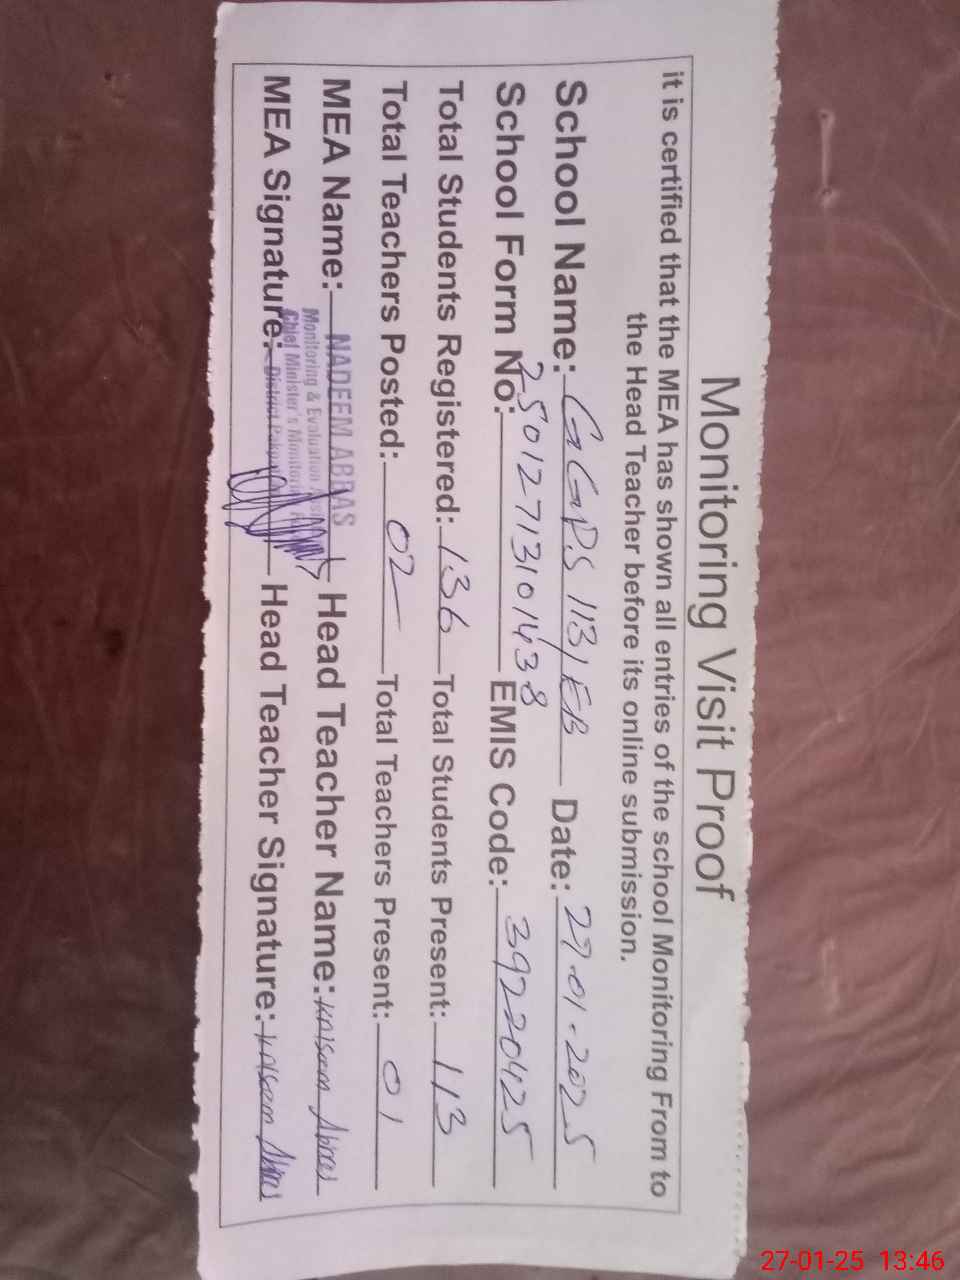 Monitoring Visit Proof
it is certified that the MEA has shown all entries of the school Monitoring From to
the Head Teacher before its online submission.
School Name: GGPS 113/EB Date: 27-01-2025
School Form No: 25012713101438 EMIS Code: 39220425
Total Students Registered: 136 Total Students Present: 113
Total Teachers Posted: 02 Total Teachers Present: 01
MEA Name: NADEEM ABBAS Head Teacher Name: Kalsoom Abbas
Monitoring & Evaluation
Chief Minister's Monitoring
MEA Signature: District Head Teacher Signature: Kalsoom Abbas
27-01-25 13:46